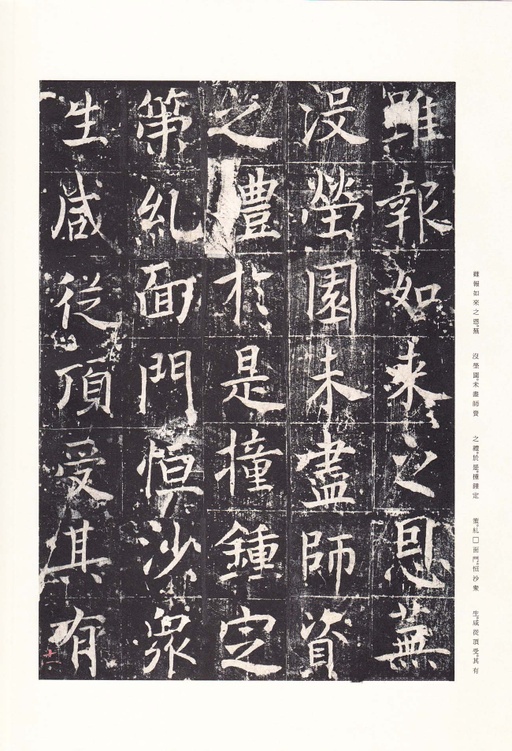 雖報如来之恩蕪
没塋園未盡師資
之禮於是撞鍾定
第糺面門恒沙衆
生咸従頂受其有
雖報如來之恩蕪 没塋園未盡師資 之禮於是撞鍾定 第糺□面門恒沙衆 生咸從頂受其有